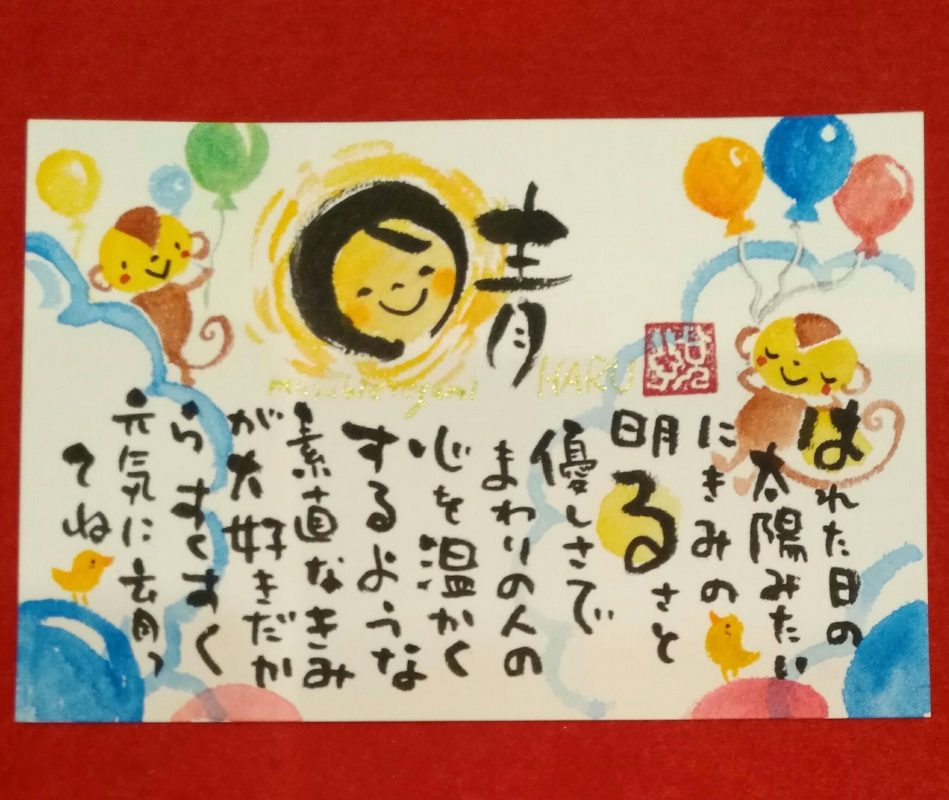 晴
HARU
はれた日の
太陽みたい
にきみの
明るさと
優しさで
まわりの人の
心を温かく
するような
素直なきみ
が大好きだか
らすくすく
元気に育っ
てね